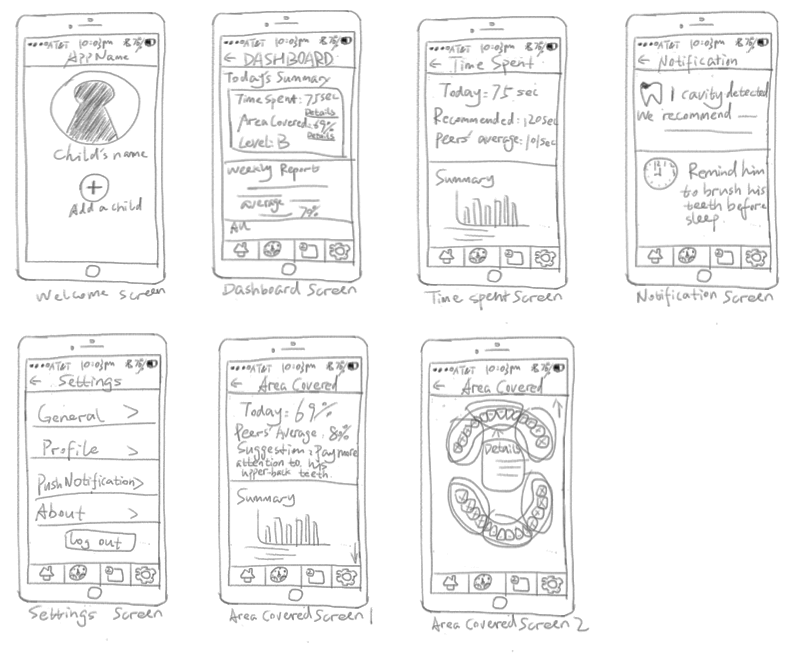 AT&T 10:03pm
App Name
Child's name
Add a child
Welcome screen
AT&T 10:03pm
← DASHBOARD
Today's Summary
Time Spent: 75sec
Details
Area Covered: 69%
Details
Level: B
Weekly Reports
average
70%
All
Dashboard Screen
AT&T 10:03pm
← Time Spent
Today: 75 sec
Recommended: 120sec
Peers' average: 101sec
Summary
Time spent Screen
AT&T 10:03pm
← Notification
1 cavity detected
We recommend
Remind him
to brush his
teeth before
sleep.
Notification Screen
AT&T 10:03pm
← Settings
General >
Profile >
Push Notification >
About >
Log out
Settings Screen
AT&T 10:03pm
← Area Covered
Today: 69%
Peers' Average: 89%
Suggestion: Pay more
attention to his
upper-back teeth.
Summary
Area Covered Screen 1
AT&T 10:03pm
← Area Covered
Details
Area Covered Screen 2